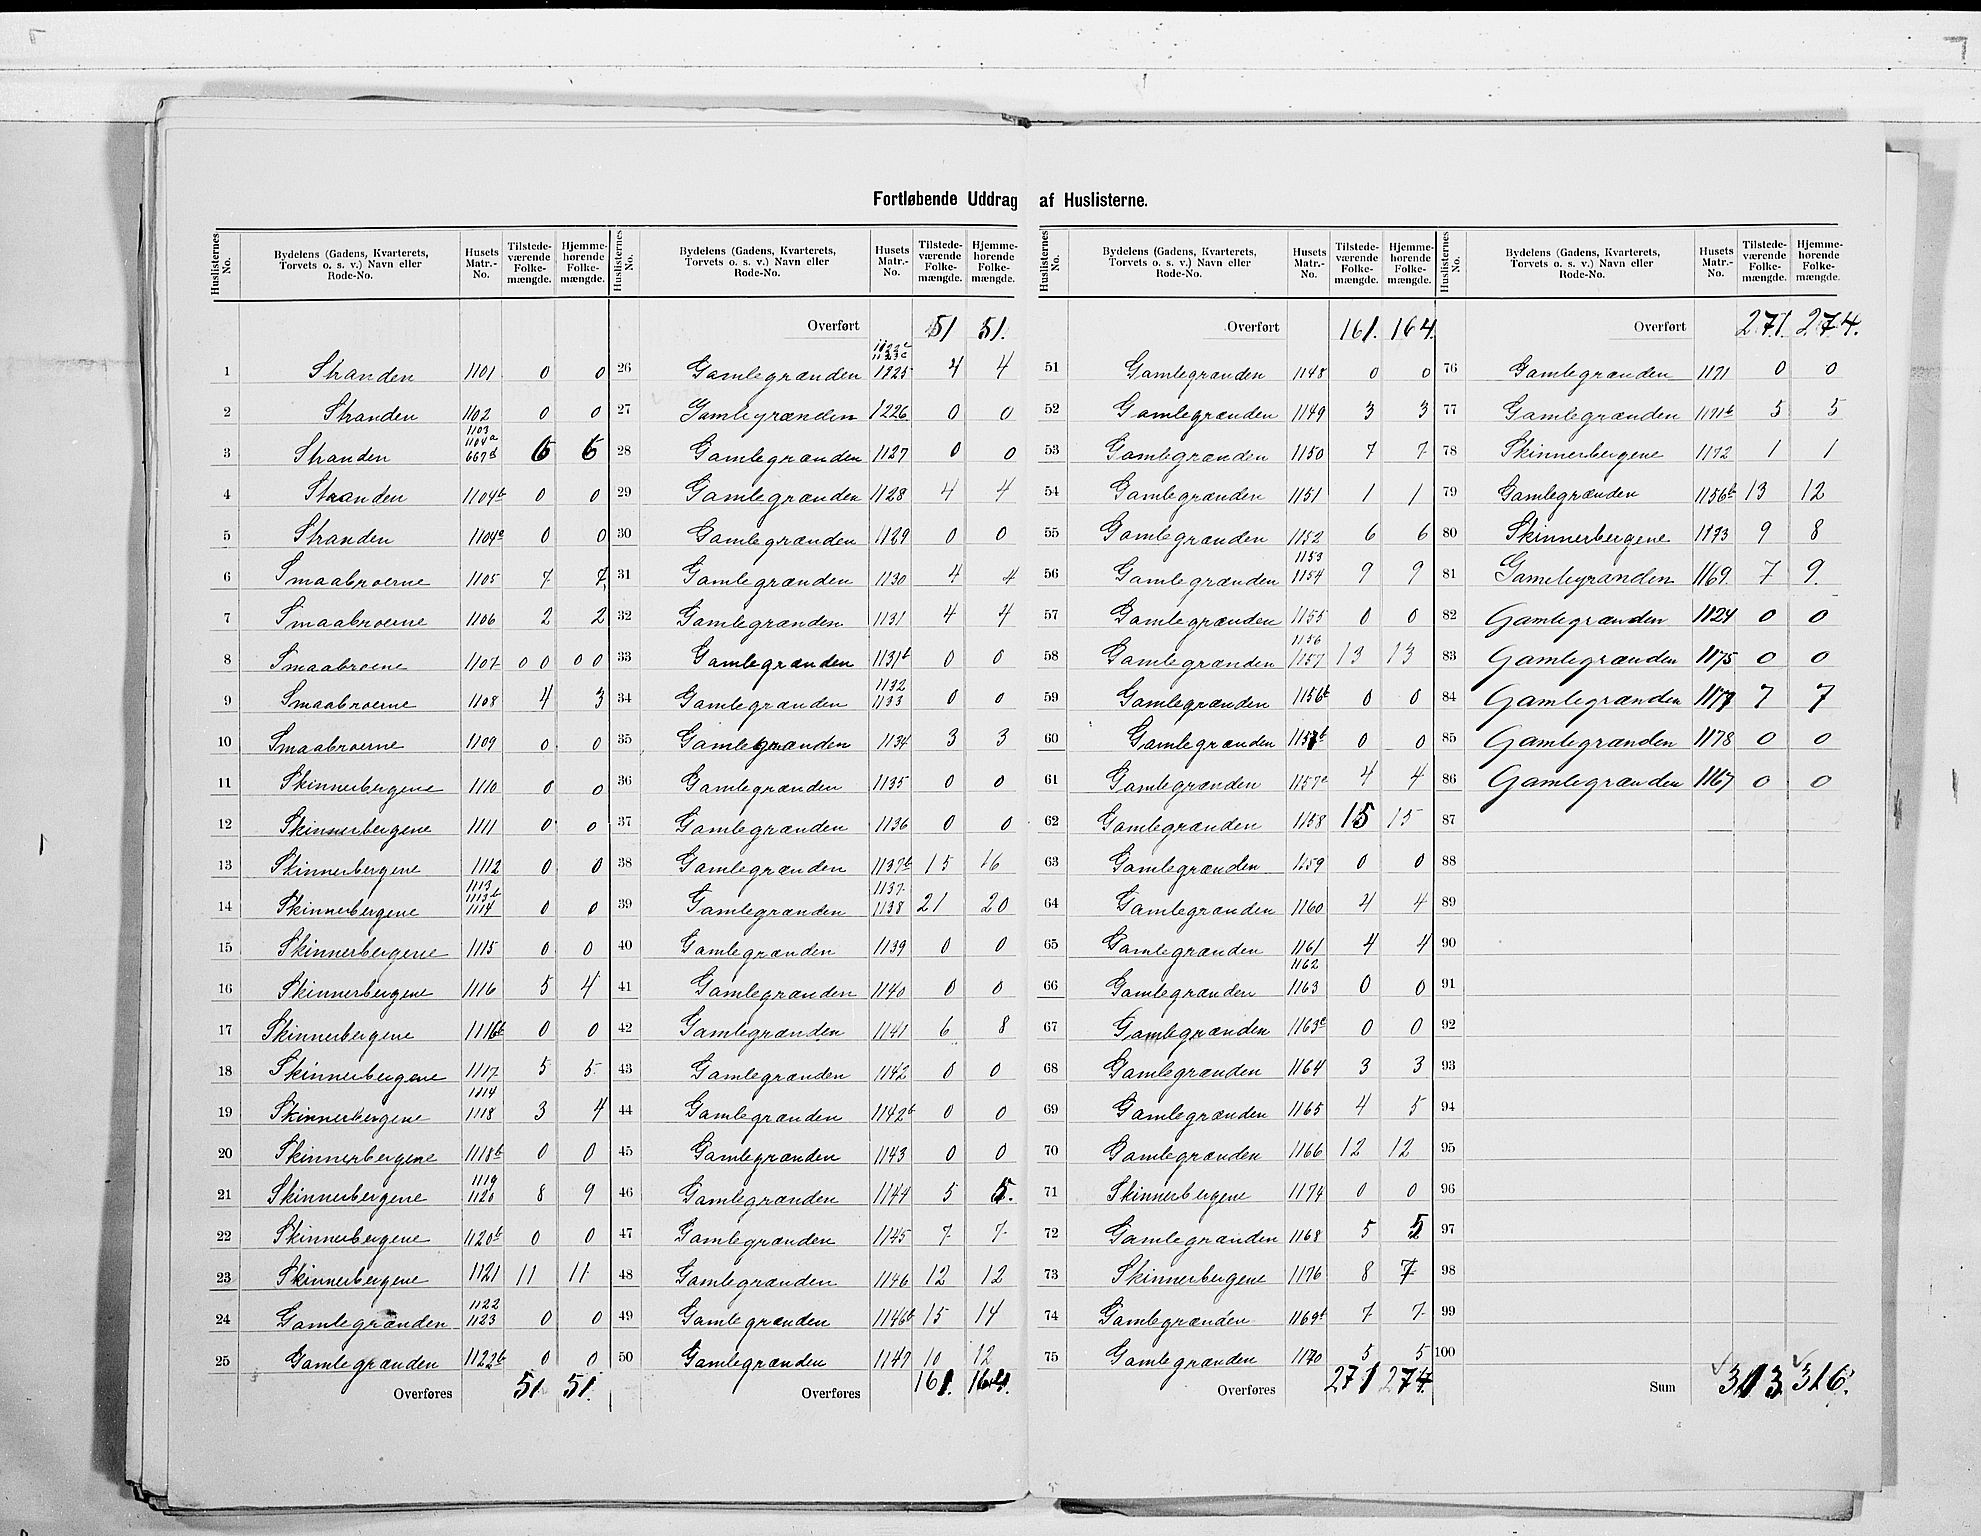 Fortløbende Uddrag af Huslisterne.
Huslisternes No. | Bydelens (Gadens, Kvarterets, Torvets o. s. v.) Navn eller Rode-No. | Husets Matr.-No. | Tilstedeværende Folkemængde. | Hjemmehørende Folkemængde.
1 Stranden 1101 0 0
2 Stranden 1102 0 0
3 Stranden 1103 1104a 667d 6 6
4 Stranden 1104b 0 0
5 Stranden 1104c 0 0
6 Smaabroerne 1105 7 7
7 Smaabroerne 1106 2 2
8 Smaabroene 1107 00 00
9 Smaabroerne 1108 4 3
10 Smaabroerne 1109 0 0
11 Skinnerbergene 1110 0 0
12 Skinnerbergene 1111 0 0
13 Skinnerbergene 1112 0 0
14 Skinnerbergene 1113 1113b 1114 0 0
15 Skinnerbergene 1115 0 0
16 Skinnerbergene 1116 5 4
17 Skinnerbergene 1116b 0 0
18 Skinnerbergene 1117 5 5
19 Skinnerbergene 1114 1118 3 4
20 Skinnerbergene 1118b 0 0
21 Skinnerbergene 1119 1120 8 9
22 Skinnerbergene 1120b 0 0
23 Skinnerbergene 1121 11 11
24 Gamlegrænden 1122 1123 0 0
25 Gamlegrænden 1122b 0 0
Overføres 51 51.
Huslisternes No. | Bydelens (Gadens, Kvarterets, Torvets o. s. v.) Navn eller Rode-No. | Husets Matr.-No. | Tilstedeværende Folkemængde. | Hjemmehørende Folkemængde.
Overført 51 51.
26 Gamlegrænden 1122c 1123c 1125 4 4
27 Gamlegrænden 1226 0 0
28 Gamlegrænden 1127 0 0
29 Gamlegrænden 1128 4 4
30 Gamlegrænden 1129 0 0
31 Gamlegrænden 1130 4 4
32 Gamlegrænden 1131 4 4
33 Gamlegrænden 1131b 0 0
34 Gamlegrænden 1132 1133 0 0
35 Gamlegrænden 1134 3 3
36 Gamlegrænden 1135 0 0
37 Gamlegrænden 1136 0 0
38 Gamlegrænden 1137b 15 16
39 Gamlegrænden 1137 1138 21 20
40 Gamlegrænden 1139 0 0
41 Gamlegrænden 1140 0 0
42 Gamlegrænden 1141 6 8
43 Gamlegrænden 1142 0 0
44 Gamlegrænden 1142b 0 0
45 Gamlegrænden 1143 0 0
46 Gamlegrænden 1144 5 5.
47 Gamlegrænden 1145 7 7
48 Gamlegrænden 1146 12 12
49 Gamlegrænden 1146b 15 14
50 Gamlegrænden 1147 10 12
Overføres 161. 164.
Huslisternes No. | Bydelens (Gadens, Kvarterets, Torvets o. s. v.) Navn eller Rode-No. | Husets Matr.-No. | Tilstedeværende Folkemængde. | Hjemmehørende Folkemængde.
Overført 161. 164.
51 Gamlegrænden 1148 0 0
52 Gamlegrænden 1149 3 3
53 Gamlegrænden 1150 7 7
54 Gamlegrænden 1151 1 1
55 Gamlegrænden 1152 6 6
56 Gamlegrænden 1153 1154 9 9
57 Gamlegrænden 1155 0 0
58 Gamlegrænden 1156 1157 13 13
59 Gamlegrænden 1156b 0 0
60 Gamlegrænden 1157b 0 0
61 Gamlegrænden 1157c 4 4
62 Gamlegrænden 1158 15 15
63 Gamlegrænden 1159 0 0
64 Gamlegrænden 1160 4 4
65 Gamlegrænden 1161 4 4
66 Gamlegrænden 1162 1163 0 0
67 Gamlegrænden 1163c 0 0
68 Gamlegrænden 1164 3 3
69 Gamlegrænden 1165 4 5
70 Gamlegrænden 1166 12 12
71 Skinnerbergene 1174 0 0
72 Gamlegrænden 1168 5 5
73 Skinnerbergene 1176 8 7
74 Gamlegrænden 1169b 7 7
75 Gamlegrænden 1170 5 5
Overføres 271 274.
Huslisternes No. | Bydelens (Gadens, Kvarterets, Torvets o. s. v.) Navn eller Rode-No. | Husets Matr.-No. | Tilstedeværende Folkemængde. | Hjemmehørende Folkemængde.
Overført 271. 274.
76 Gamlegrænden 1171 0 0
77 Gamlegrænden 1171b 5 5
78 Skinnerbergene 1172 1 1
79 Gamlegrænden 1156b 13 12
80 Skinnerbergene 1173 9 8
81 Gamlegrænden 1169 7 9.
82 Gamlegrænden 1124 0 0
83 Gamlegrænden 1175 0 0
84 Gamlegrænden 1177 7 7
85 Gamlegrænden 1178 0 0
86 Gamlegrænden 1167 0 0
87
88
89
90
91
92
93
94
95
96
97
98
99
100
Sum 313 316.